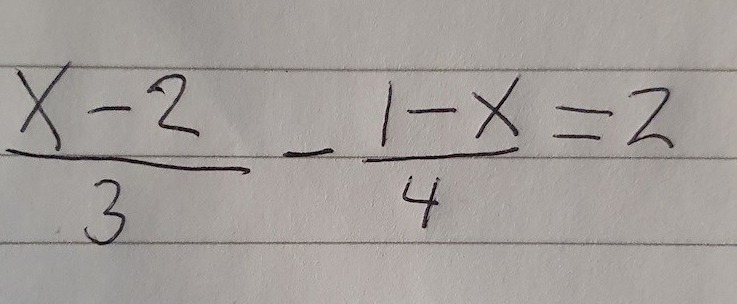 x-2/3 - 1-x/4 = 2